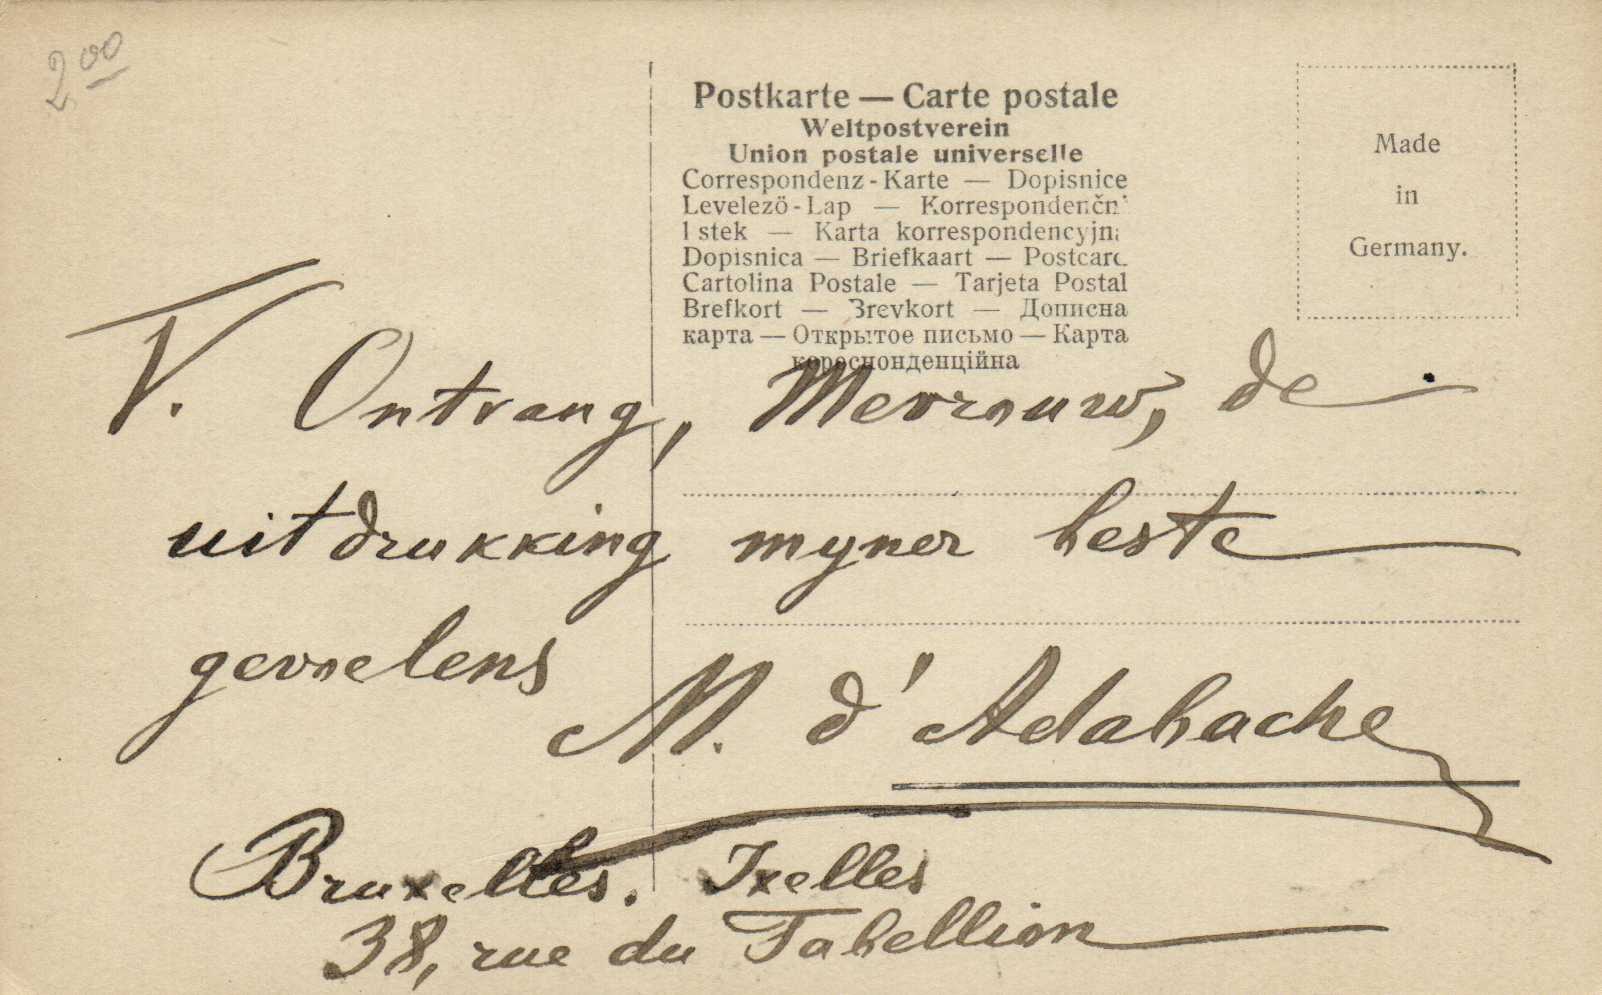 2,00
Postkarte — Carte postale
Weltpostverein
Union postale universelle
Correspondenz-Karte — Dopisnice
Levelező-Lap — Korrespondenční
lístek — Karta korrespondencyjna
Dopisnica — Briefkaart — Postcard
Cartolina Postale — Tarjeta Postal
Brefkort — Brevkort — Дописна
карта — Открытое письмо — Карта
кореспонденційна
Made
in
Germany.
V. Ontvang, Mevrouw, de
uitdrukking myner beste
gevoelens
M. d'Adabache
Bruxelles. Ixelles
38, rue du Tabellion